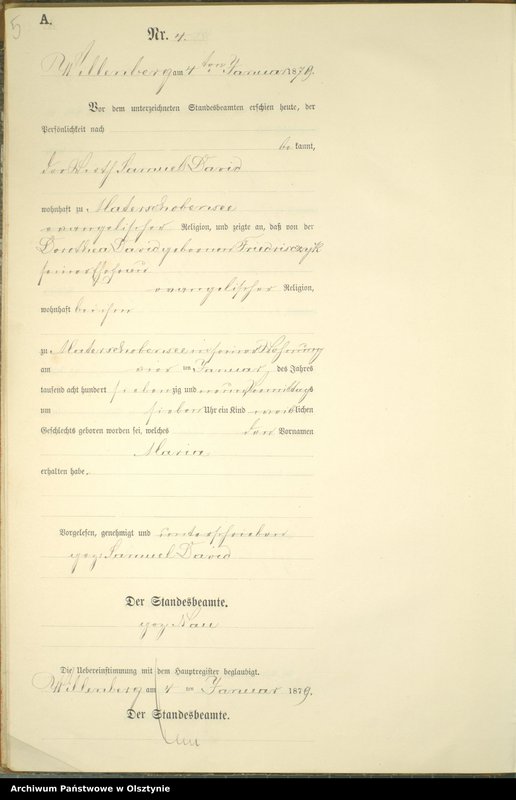 5
A.
Nr. 4.
Willenberg am 4 ten Januar 1879.
Vor dem unterzeichneten Standesbeamten erschien heute, der
Persönlichkeit nach
bekannt,
der Wirth Samuel David
wohnhaft zu Materschobensee
evangelischer Religion, und zeigte an, daß von der
Dorothea David geborenen
seiner Ehefrau
evangelischer Religion,
wohnhaft bei ihm
zu Materschobensee in seiner Wohnung
am vier ten Januar des Jahres
tausend acht hundert siebenzig und neun Vormittags
um sieben Uhr ein Kind weiblichen
Geschlechts geboren worden sei, welches den Vornamen
Maria
erhalten habe.
Vorgelesen, genehmigt und unterschrieben
gez. Samuel David
Der Standesbeamte.
gez.
Die Uebereinstimmung mit dem Hauptregister beglaubigt.
Willenberg am 4 ten Januar 1879.
Der Standesbeamte.
Archiwum Państwowe w Olsztynie